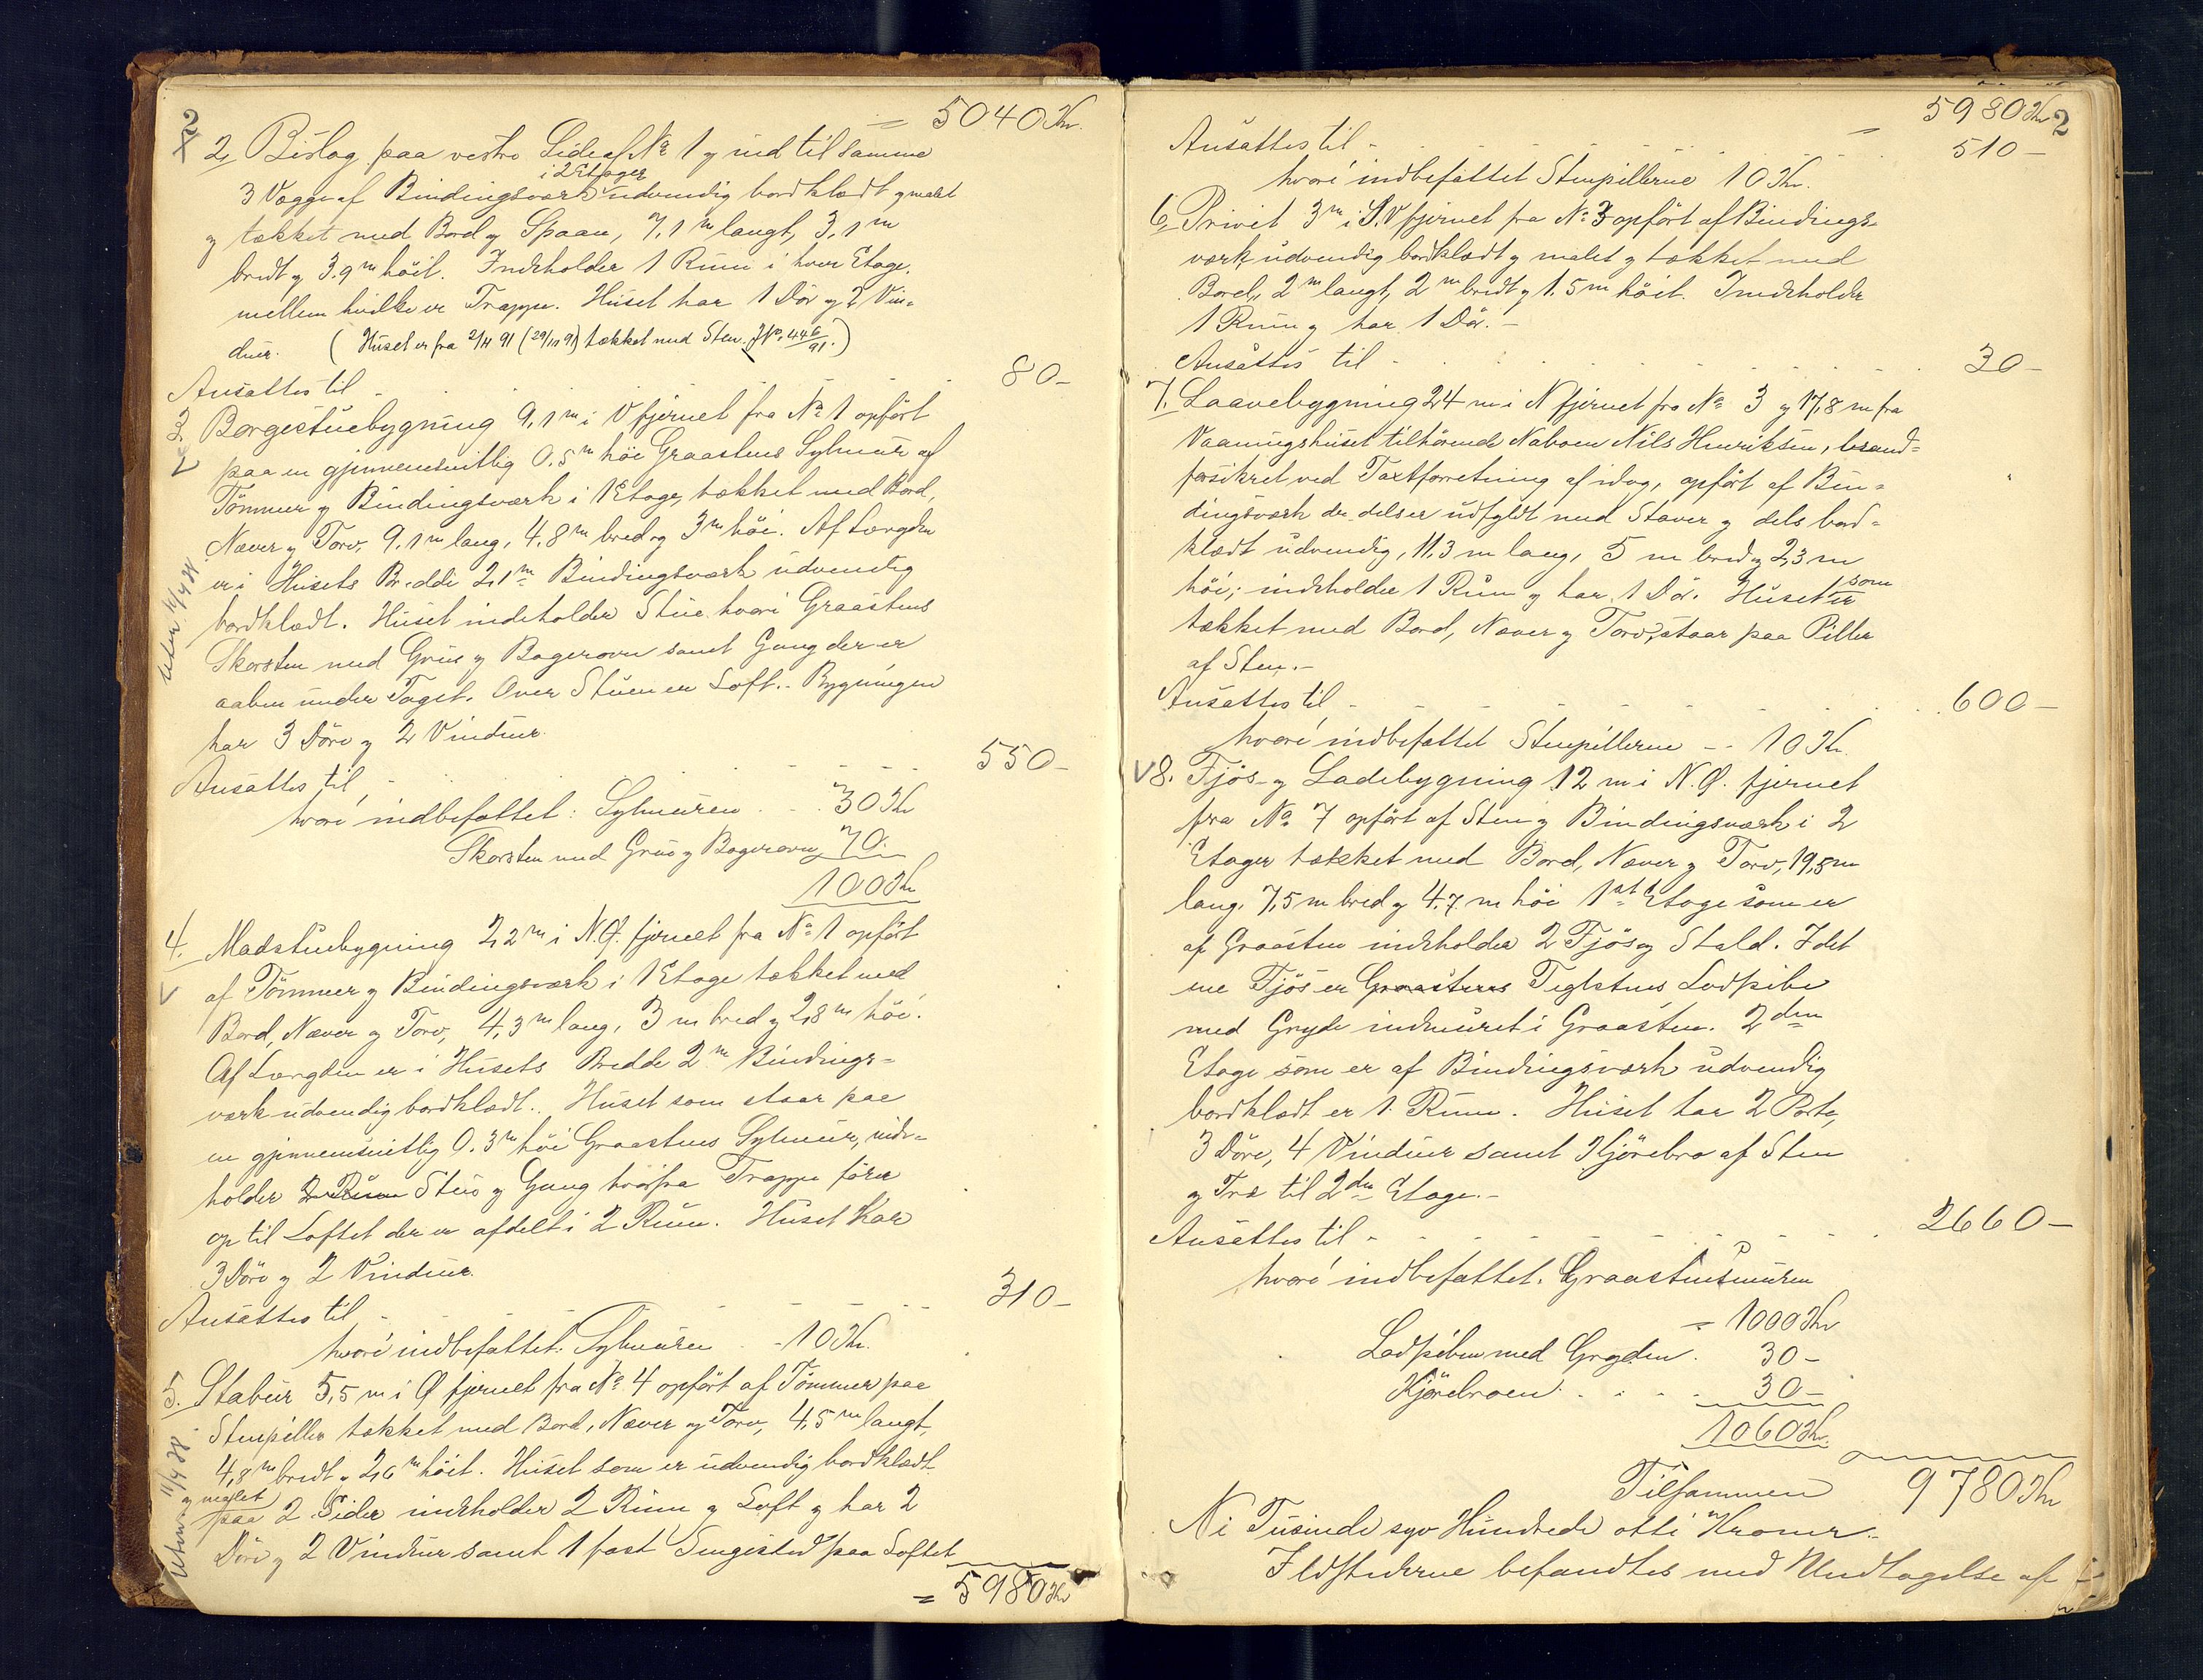 2
= 5040 Kr.
2, Bislag paa vestre Side af No 1 og ind til samme
i 2 Etager
3 Vægge af Bindingsværk udvendig bordklædt og malt
og tækket med Bord og Spaan, 7,1 m langt, 3,1 m
bredt og 3.9 m höit. Indeholder 1 Rum i hver Etage,
mellem hvilke er Trappe. Huset har 1 Dör og 2 Vin-
duer. (Huset er fra 2/11 91 (29/10 91) tækket med Sten. J.No. 446/91.)
Ansættes til - . . . . . 80-
3, Borgestuebygning 9,1 m i V fjernet fra No 1 opfört
paa en gjennemsnitlig 0.5 m höi Graastens Sylmur af
Tömmer og Bindingsværk i 1 Etage, tækket med Bord,
Næver og Torv, 9.1 m lang, 4.8 m bred og 3 m höi. Af Længden
er i Husets Bredde 2,1 m Bindingsværk udvendig
bordklædt. Huset indeholder Stue hvori Graastens
Skorsten med Grue og Bagerovn samt Gang der er
aaben under Taget. Over Stuen er Loft. - Bygningen
har 3 Döre og 2 Vinduer.
Ansættes til - . . . . . 550-
hvori indbefattet: Sylmuren . - . 30 Kr
Skorsten med Grue og Bagerovn 70.
100 Kr
4. Madstuebygning 2,2 m i N.Ø. fjernet fra No 1 opfört
af Tömmer og Bindingsværk i 1 Etage tækket med
Bord, Næver og Torv, 4,3 m lang, 3 m bred og 2,8 m höi.
Af Længden er i Husets Bredde 2 m Bindings-
værk udvendig bordklædt. Huset som staar paa
en gjennemsnitlig 0.3 m höi Graastens Sylmur, inde-
holder 2 Rum Stue og Gang hvorfra Trappe förer
op til Loftet der er afdelt i 2 Rum. Huset har
3 Döre og 2 Vinduer.
Ansættes til - . . . . . 310-
hvori indbefattet: Sylmuren . - 10 Kr.
5. Stabur 5,5 m i Ø fjernet fra No 4 opfört af Tömmer paa
Stenpiller tækket med Bord, Næver og Torv, 4,5 m langt,
4,8 m bredt og 2,6 m höit. Huset som er udvendig bordklædt
og malet
paa 2 Sider indeholder 2 Rum og Loft og har 2
Döre og 2 Vinduer samt 1 fast Sengested paa Loftet
= 5980 Kr
5980 Kr 2
Ansættes til - . . . . . 510-
hvori indbefattet Stenpillerne 10 Kr.
6, Privet 3 m i S.V fjernet fra No 3 opfört af Bindings-
værk udvendig bordklædt og malet og tækket med
Bord, 2 m langt, 2 m bredt og 1.5 m höit. Indeholder
1 Rum og har 1 Dör. -
Ansættes til . . . . . 30-
7. Laavebygning 24 m i N fjernet fra No 3 og 17,8 m fra
Vaaningshuset tilhörende Naboen Nils Henriksen, brand-
forsikret ved Taxtforretning af idag, opfört af Bin-
dingsværk der dels er udfyldt med Staver og dels bord-
klædt udvendig, 11,3 m lang, 5 m bred og 2,3 m
höi; indeholder 1 Rum og har 1 Dör. Huset som er
tækket med Bord, Næver og Torv, staar paa Piller
af Sten. -
Ansættes til - . . . . . 600-
hvori indbefattet Stenpillerne -- 10 Kr.
8. Fjös- og Ladebygning 12 m i N.Ø. fjernet
fra No 7 opfört af Sten og Bindingsværk i 2
Etager tækket med Bord, Næver og Torv, 19,5 m
lang, 7,5 m bred og 4.7 m höi 1ste Etage som er
af Graasten indeholder 2 Fjös og Stald. I det
ene Fjös er Graastens Teglstens Lodpibe
med Gryde indmuret i Graasten. 2den
Etage som er af Bindingsværk udvendig
bordklædt er 1 Rum. Huset har 2 Porte,
3 Döre, 4 Vinduer samt Kjörebro af Sten
og Træ til 2den Etage. -
Ansættes til - . . . . . 2660-
hvori indbefattet. Graastensmuren
= 1000 Kr
Lodpiben med Gryden. 30-
Kjörebroen . . . . 30-
1060 Kr.
Tilsammen 9780 Kr
Ni Tusinde syv Hundrede otti Kroner. -
Ildstederne befandtes med Undtagelse af